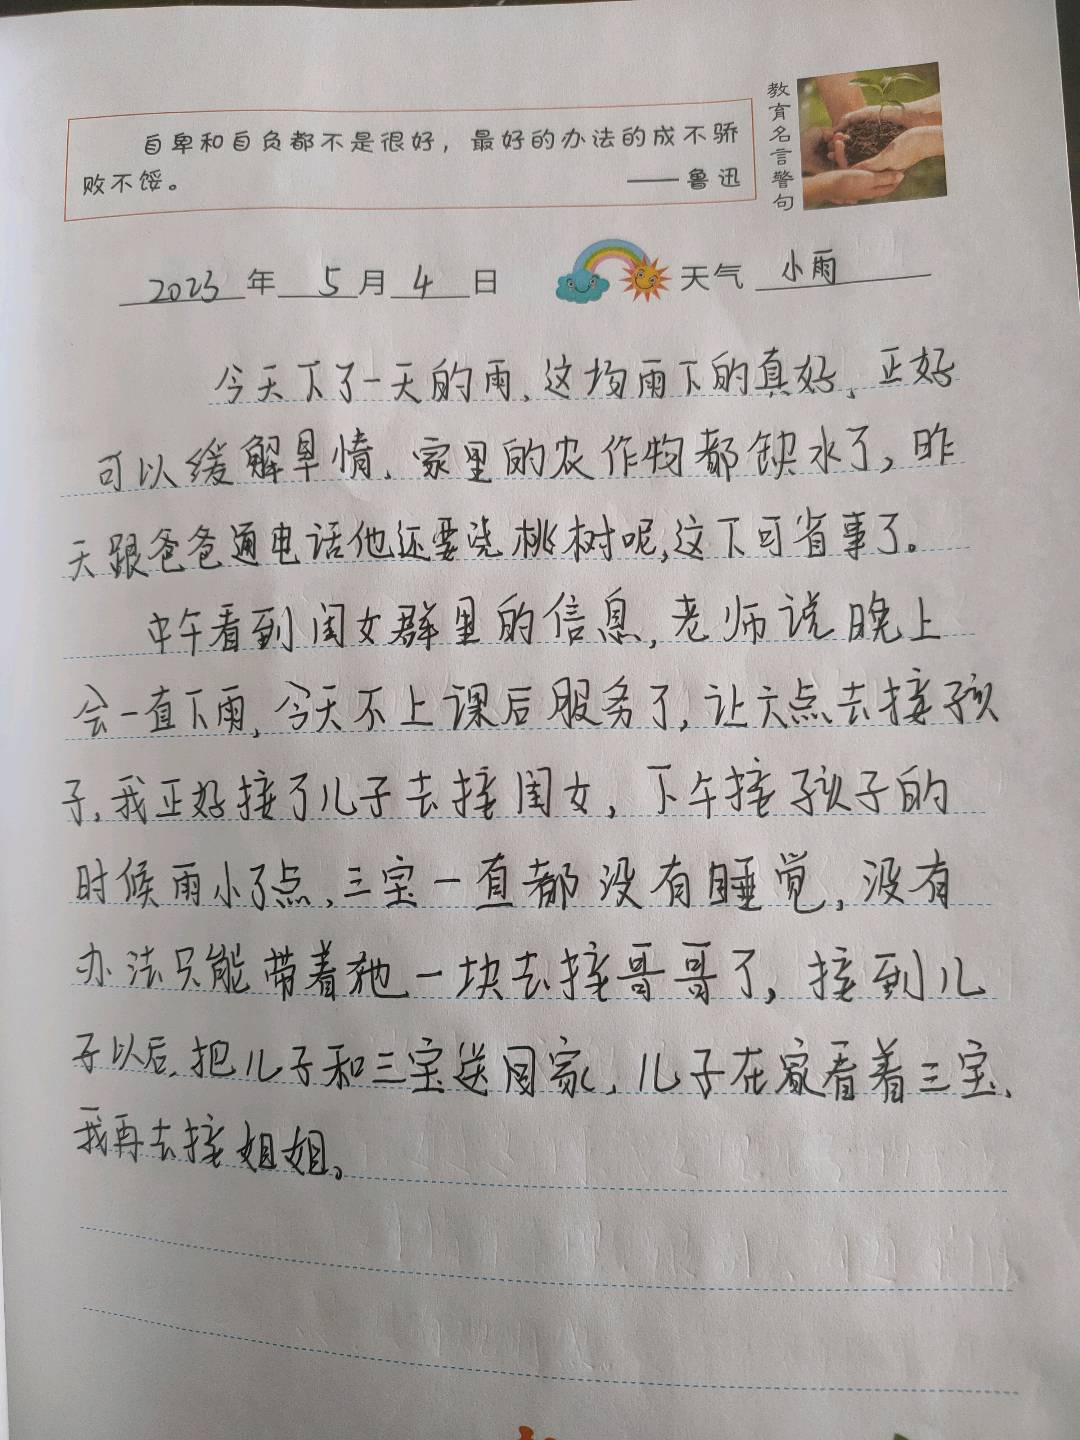 自卑和自负都不是很好，最好的办法的成不骄
败不馁。
——鲁迅
教育名言警句
2023年5月4日 天气 小雨
今天下了一天的雨，这场雨下的真好，正好
可以缓解旱情，家里的农作物都缺水了，昨
天跟爸爸通电话他还要浇桃树呢，这下可省事了。
中午看到闺女群里的信息，老师说晚上
会一直下雨，今天不上课后服务了，让六点去接孩
子，我正好接了儿子去接闺女，下午接孩子的
时候雨小了点，三宝一直都没有睡觉，没有
办法只能带着她一块去接哥哥了，接到儿
子以后，把儿子和三宝送回家，儿子在家看着三宝，
我再去接姐姐。